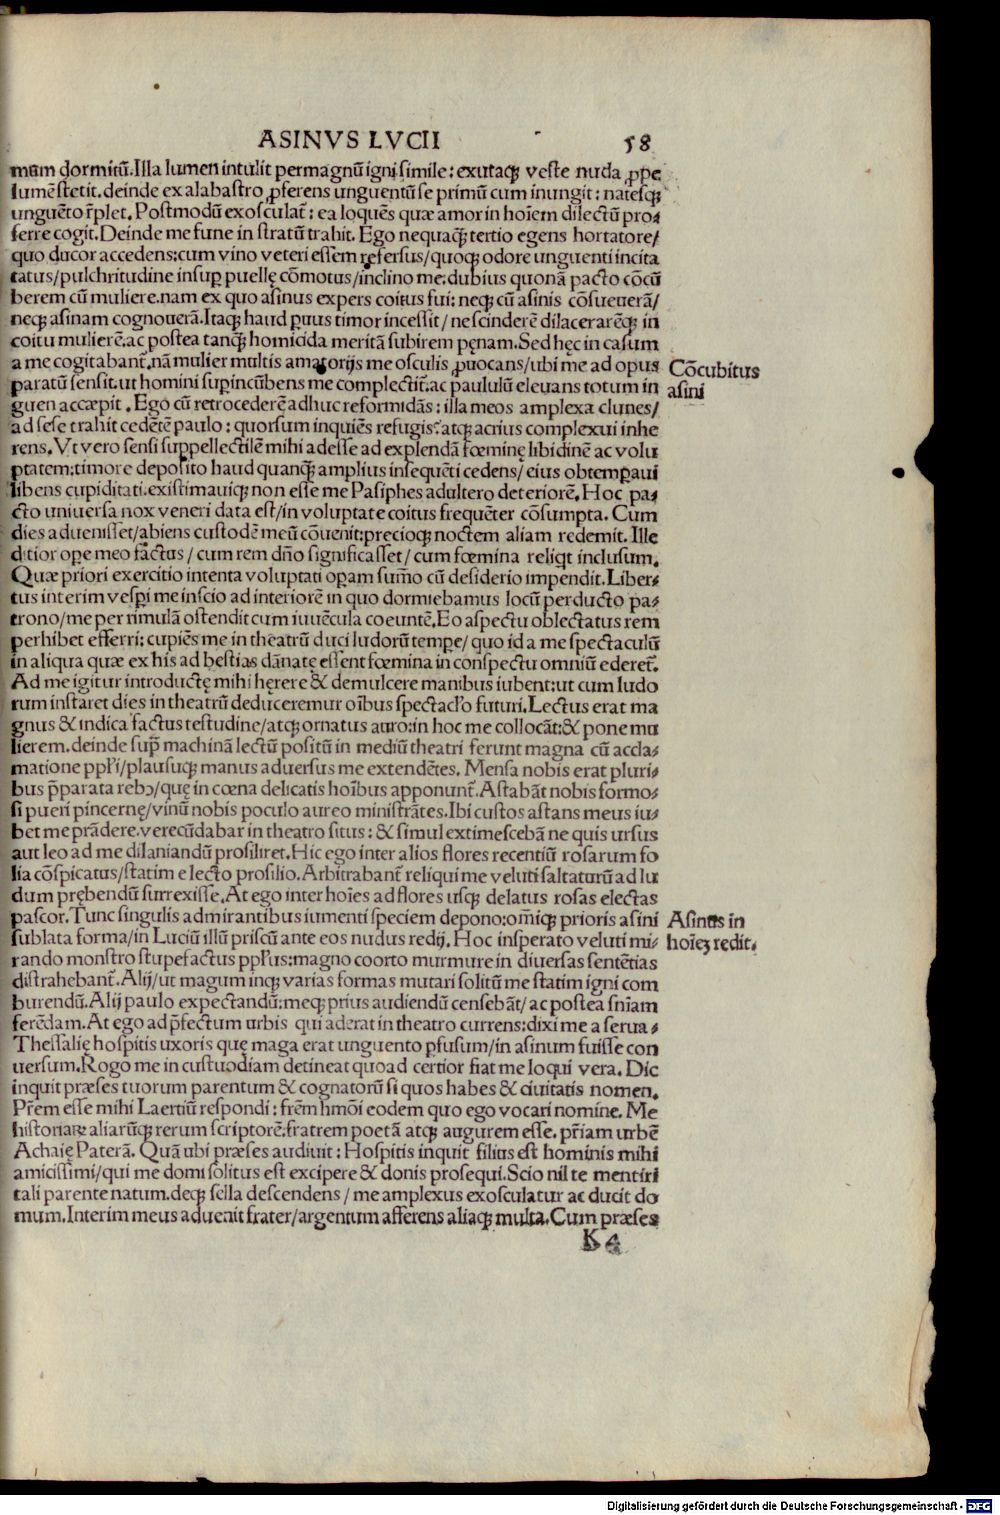 ASINVS LVCII 58
mum dormitū. Illa lumen intulit permagnū igni simile: exutaqꝫ veste nuda ꝓpe
lumē stetit. deinde ex alabastro ꝓferens unguentū se primū cum inungit: natesqꝫ
unguēto r̄plet. Postmodū exosculat᷑: ea loquēs quæ amor in hoīem dilectū pro-
ferre cogit. Deinde me fune in stratū trahit. Ego nequaqꝫ̄ tertio egens hortatore/
quo ducor accedens: cum vino veteri essem refersus/ quoqꝫ odore unguenti incita
tatus/ pulchritudine insuꝑ puellę cōmotus/ inclino me: dubius quonā pacto cōcū
berem cū muliere. nam ex quo asinus expers coitus fui: neqꝫ cū asinis cōsueuerā/
neqꝫ asinam cognouerā. Itaqꝫ haud ꝑuus timor incessit/ ne scinderē dilacerarēqꝫ in
coitu mulierē. ac postea tanqꝫ̄ homicida meritā subirem pęnam. Sed hęc in casum
a me cogitabant᷑. nā mulier multis amatorijs me osculis ꝓuocans/ ubi me ad opus
Cōcubitus
paratū sensit. ut homini suꝑincūbens me complectit᷑. ac paululū eleuans totum in
asini
guen accæpit. Ego cū retrocederē adhuc reformidās: illa meos amplexa clunes/
ad sese trahit cedētē paulo: quorsum inquiēs refugis? atqꝫ acrius complexui inhe
rens. Vt vero sensi suppellectilē mihi adesse ad explendā fœminę libidinē ac volu
ptatem: timore deposito haud quanqꝫ̄ amplius insequēti cedens/ eius obtemꝑaui
libens cupiditati. existimauiqꝫ non esse me Pasiphes adultero deteriorē. Hoc pa-
cto uniuersa nox veneri data est/ in voluptate coitus frequēter cōsumpta. Cum
dies aduenisset/ abiens custodē meū cōuenit: precioqꝫ noctem aliam redemit. Ille
ditior oꝑe meo factus / cum rem dn̄o significasset/ cum fœmina reliqt inclusum.
Quæ priori exercitio intenta voluptati oꝑam sum̄o cū desiderio impendit. Liber-
tus interim vesꝑi me inscio ad interiorē in quo dormiebamus locū perducto pa-
trono/ me per rimulā ostendit cum iuuēcula coeuntē. Eo aspectu oblectatus rem
perhibet efferri: cupiēs me in theatrū duci ludorū tempe/ quo id a me spectaculū
in aliqua quæ ex his ad bestias dānatę essent fœmina in conspectu omniū ederet᷑.
Ad me igitur introductę mihi hęrere & demulcere manibus iubent: ut cum ludo
rum instaret dies in theatrū deduceremur oībus spectacl'o futuri. Lectus erat ma
gnus & indica factus testudine/ atqꝫ ornatus auro: in hoc me collocāt: & pone mu
lierem. deinde suꝑ machinā lectū positū in mediū theatri ferunt magna cū accla-
matione ppl'i/ plausuqꝫ manus aduersus me extendētes. Mensa nobis erat pluri-
bus p̄parata rebꝯ/ quę in cœna delicatis hoībus apponunt᷑. Astabāt nobis formo-
si pueri pincernę/ vinū nobis poculo aureo ministrātes. Ibi custos astans meus iu-
bet me prādere. verecūdabar in theatro situs: & simul extimescebā ne quis ursus
aut leo ad me dilaniandū prosiliret. Hic ego inter alios flores recentiū rosarum fo
lia cōspicatus/ statim e lecto prosilio. Arbitrabant᷑ reliqui me veluti saltaturū ad lu
dum prębendū surrexisse. At ego inter hoīes ad flores usqꝫ delatus rosas electas
pascor. Tunc singulis admirantibus iumenti speciem depono: om̄iqꝫ prioris asini
Asinus in
sublata forma/ in Luciū illū priscū ante eos nudus redij. Hoc insperato veluti mi-
hoīeꝫ redit.
rando monstro stupefactus ppl'us: magno coorto murmure in diuersas sentētias
distrahebant᷑. Alij/ ut magum inqꝫ varias formas mutari solitū me statim igni com
burendū. Alij paulo expectandū: meqꝫ prius audiendū censebāt/ ac postea sn̄iam
ferēdam. At ego ad p̄fectum urbis qui aderat in theatro currens: dixi me a serua-
Thessalię hospitis uxoris quę maga erat unguento ꝑfusum/ in asinum fuisse con
uersum. Rogo me in custuodiam detineat quoad certior fiat me loqui vera. Dic
inquit præses tuorum parentum & cognatorū si quos habes & ciuitatis nomen.
Pr̄em esse mihi Laertiū respondi: fr̄em hmōi eodem quo ego vocari nomine. Me
historiaꝝ aliarūqꝫ rerum scriptorē. fratrem poetā atqꝫ augurem esse. pr̄iam urbē
Achaię Paterā. Quā ubi præses audiuit: Hospitis inquit filius est hominis mihi
amicissimi/ qui me domi solitus est excipere & donis prosequi. Scio nil te mentiri
tali parente natum. deqꝫ sella descendens / me amplexus exosculatur ac ducit do
mum. Interim meus aduenit frater/ argentum afferens aliaqꝫ multa. Cum præses
K 4
Digitalisierung gefördert durch die Deutsche Forschungsgemeinschaft - DFG